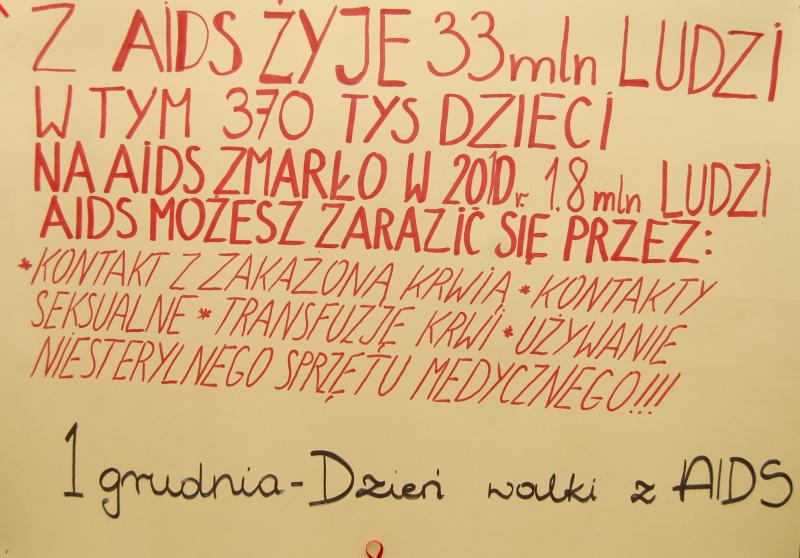 Z AIDS ŻYJE 33mln LUDZI
W TYM 370 TYS DZIECI
NA AIDS ZMARŁO W 2010r. 1.8 mln LUDZI
AIDS MOŻESZ ZARAZIĆ SIĘ PRZEZ:
*KONTAKT Z ZAKAŻONĄ KRWIĄ *KONTAKTY
SEKSUALNE *TRANSFUZJĘ KRWI *UŻYWANIE
NIESTERYLNEGO SPRZĘTU MEDYCZNEGO!!!
1 grudnia - Dzień walki z AIDS